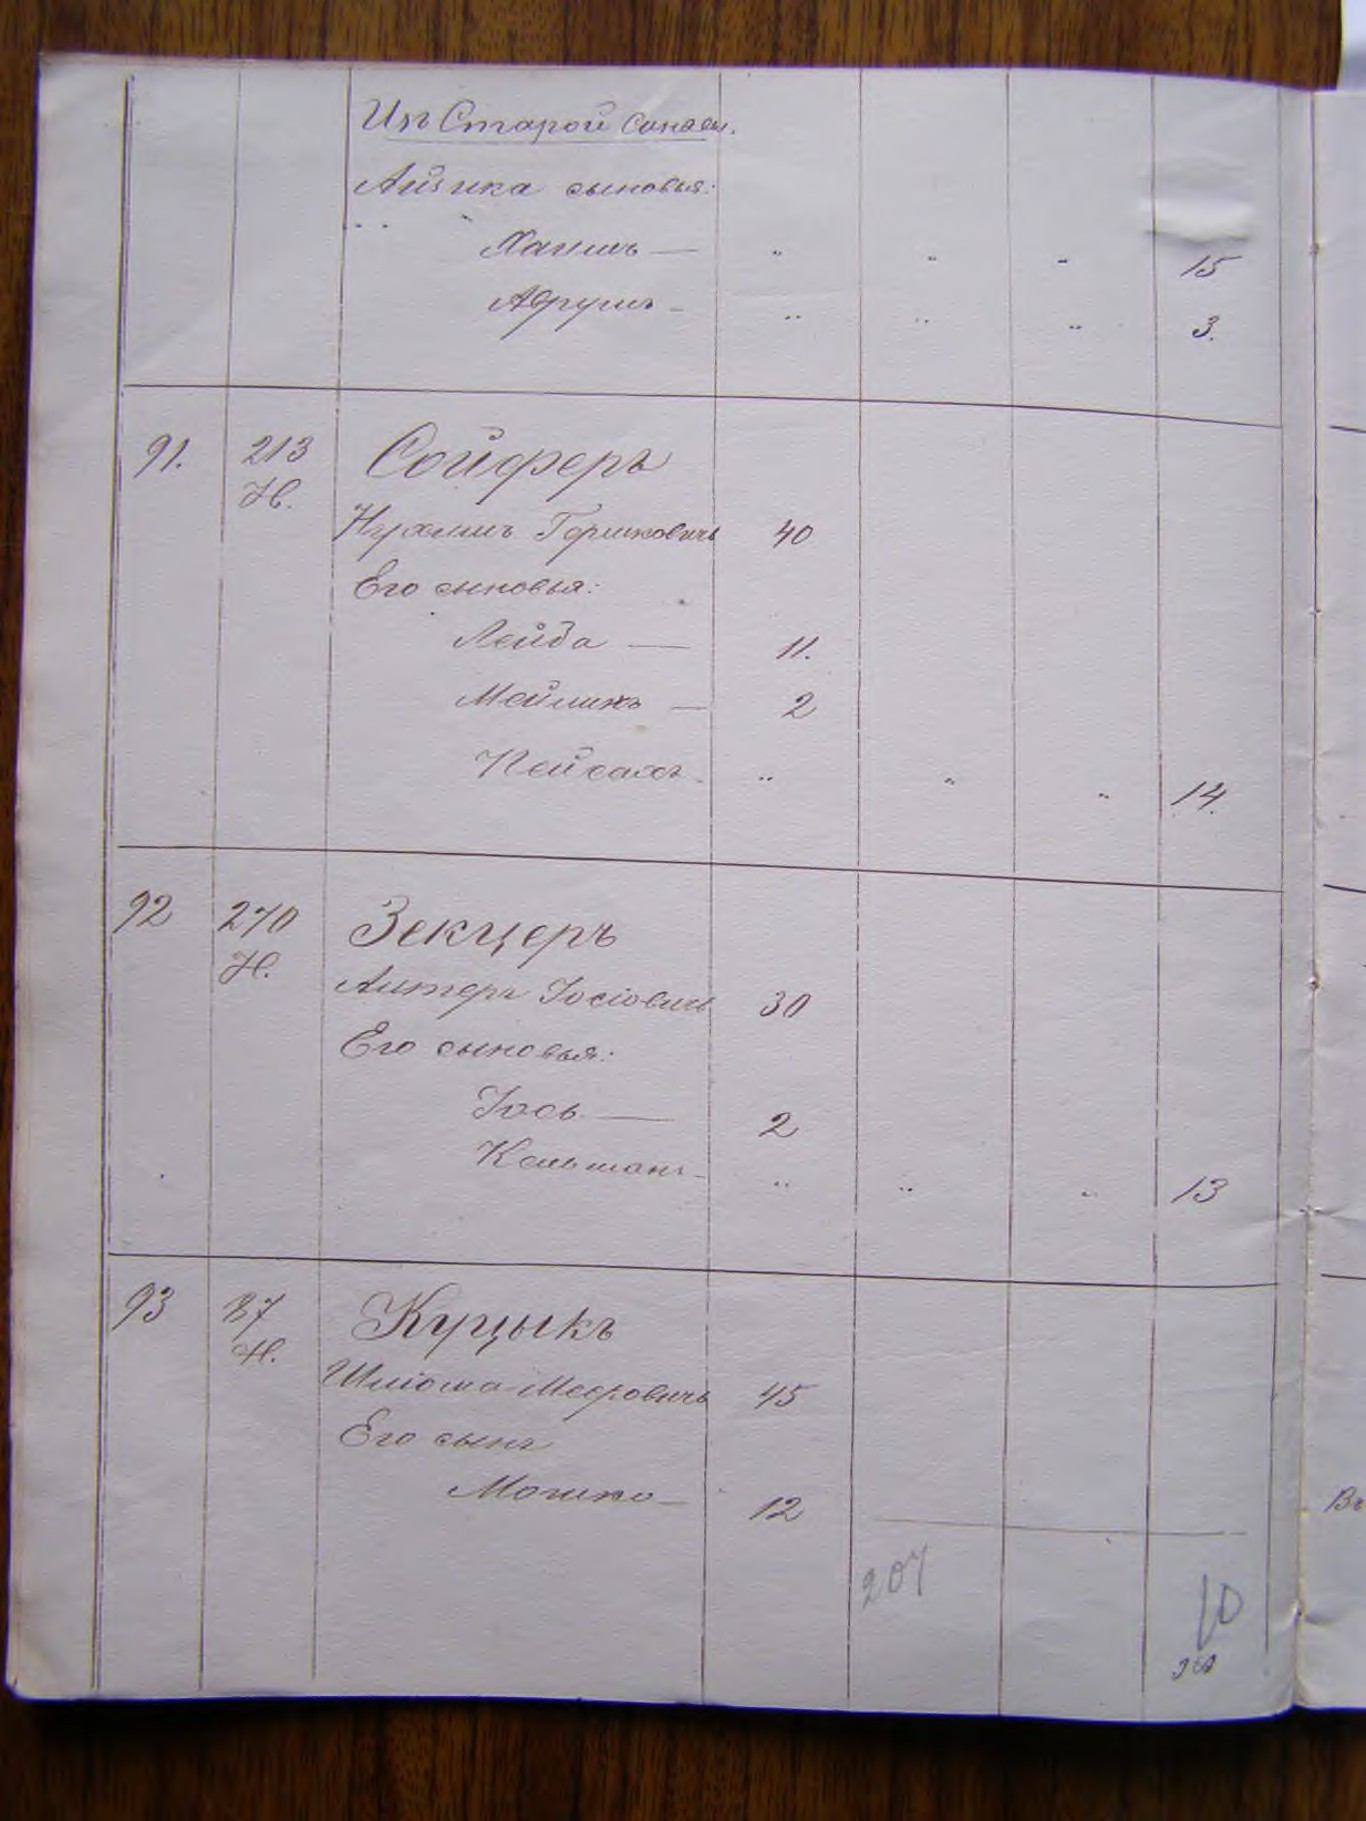 Изъ Старой Синявы.
Айзика сыновья:
Хаимъ — " " " 15
Аврумъ - " " " 3.
91. 213 Сойферъ
Н.
Нухимъ Гершковичъ 40
Его сыновья:
Лейба — 11.
Мейлихъ — 2
Пейсахъ - " " " 14.
92 270 Зекцеръ
Н.
Алтеръ Іосіовичъ 30
Его сыновья:
Іось — 2
Кельманъ - " " " 13
93 87 Куцыкъ
Н.
Шліома Мееровичъ 45
Его сынъ
Мошко — 12
207 10